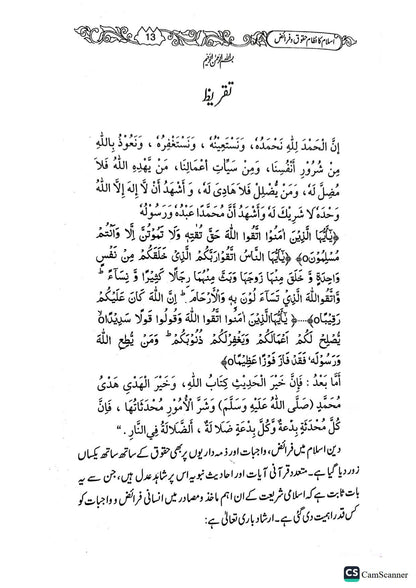 اسلام کا نظام حقوق و فرائض
13
تقریظ
إِنَّ الْحَمْدَ لِلّٰهِ نَحْمَدُهٗ، وَنَسْتَعِيْنُهٗ ، وَنَسْتَغْفِرُهٗ ، وَنَعُوْذُ بِاللّٰهِ
مِنْ شُرُوْرِ أَنْفُسِنَا، وَمِنْ سَيِّاٰتِ أَعْمَالِنَا، مَنْ يَّهْدِهِ اللّٰهُ فَلاَ
مُضِلَّ لَهٗ، وَمَنْ يُّضْلِلْ فَلاَ هَادِيَ لَهٗ ، وَ أَشْهَدُ أَنْ لَّا إِلٰهَ إِلَّا اللّٰهُ
وَحْدَهٗ لا شَرِيْكَ لَهٗ وَأَشْهَدُ أَنَّ مُحَمَّدًا عَبْدُهٗ وَرَسُوْلُهٗ
﴿يٰٓاَيُّهَا الَّذِيْنَ اٰمَنُوا اتَّقُوا اللّٰهَ حَقَّ تُقٰتِهٖ وَلَا تَمُوْتُنَّ اِلَّا وَاَنْتُمْ
مُّسْلِمُوْنَo﴾ ﴿يٰٓاَيُّهَا النَّاسُ اتَّقُوْا رَبَّكُمُ الَّذِيْ خَلَقَكُمْ مِّنْ نَّفْسٍ
وَّاحِدَةٍ وَّ خَلَقَ مِنْهَا زَوْجَهَا وَبَثَّ مِنْهُمَا رِجَالًا كَثِيْرًا وَّ نِسَآءً ۚ
وَاتَّقُوا اللّٰهَ الَّذِيْ تَسَآءَلُوْنَ بِهٖ وَالْاَرْحَامَ ؕ اِنَّ اللّٰهَ كَانَ عَلَيْكُمْ
رَقِيْبًاo﴾....﴿ يٰٓاَيُّهَا الَّذِيْنَ اٰمَنُوا اتَّقُوا اللّٰهَ وَقُوْلُوْا قَوْلًا سَدِيْدًاo
يُّصْلِحْ لَكُمْ اَعْمَالَكُمْ وَيَغْفِرْ لَكُمْ ذُنُوْبَكُمْ ؕ وَمَنْ يُّطِعِ اللّٰهَ
وَرَسُوْلَهٗ فَقَدْ فَازَ فَوْزًا عَظِيْمًاo﴾
أَمَّا بَعْدُ : فَإِنَّ خَيْرَ الْحَدِيْثِ كِتَابُ اللّٰهِ، وَخَيْرَ الْهَدْيِ هَدْيُ
مُحَمَّدٍ (صَلَّى اللّٰهُ عَلَيْهِ وَسَلَّمَ) وَشَرَّ الْأُمُوْرِ مُحْدَثَاتُهَا ، فَإِنَّ
كُلَّ مُحْدَثَةٍ بِدْعَةٌ وَّكُلَّ بِدْعَةٍ ضَلَالَةٌ ، اَلضَّلَالَةُ فِي النَّارِ . "
دین اسلام میں فرائض، واجبات اور ذمہ داریوں پر بھی حقوق کے ساتھ ساتھ یکساں
زور دیا گیا ہے۔ متعدد قرآنی آیات اور احادیث نبویہ اس پر شاہد عدل ہیں، جن سے یہ
بات ثابت ہے کہ اسلامی شریعت کے ان اہم ماخذ و مصادر میں انسانی فرائض و واجبات کو
کس قدر اہمیت دی گئی ہے۔ ارشاد باری تعالیٰ ہے:
CS CamScanner